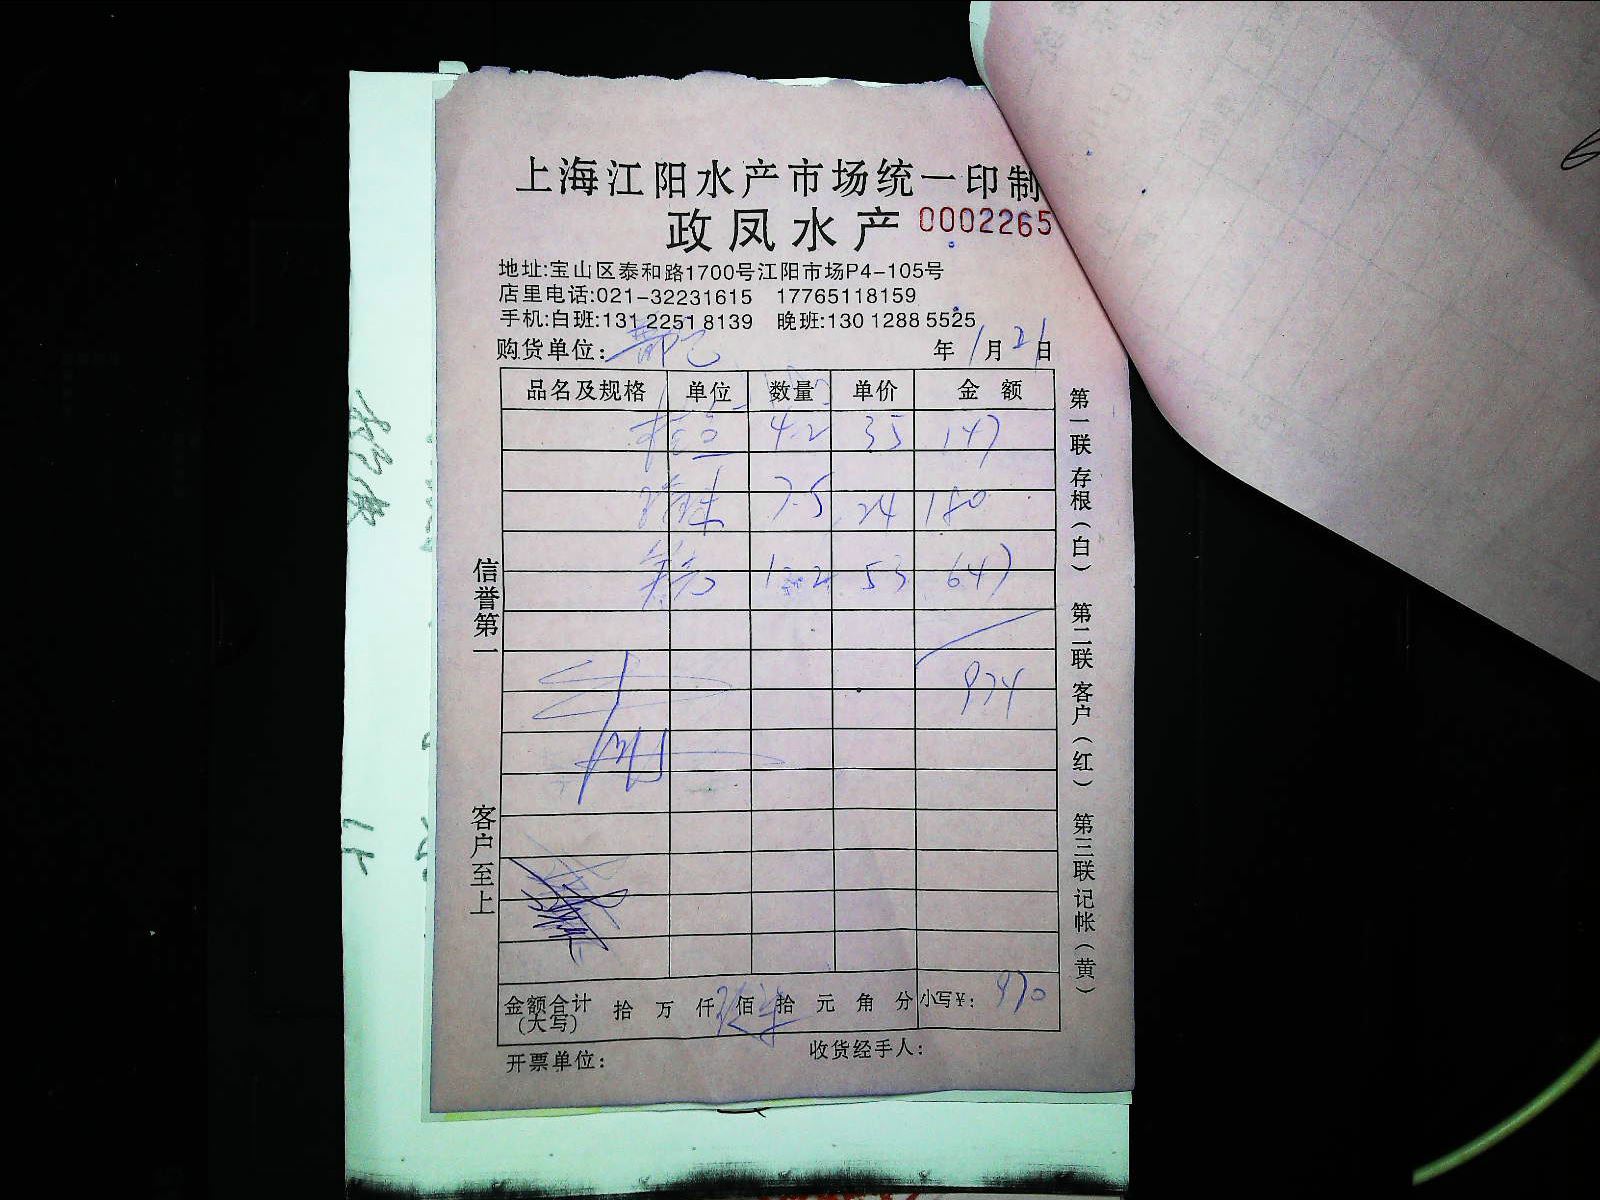 上海江阳水产市场统一印制
政凤水产 0002265
地址:宝山区泰和路1700号江阳市场P4-105号
店里电话:021-32231615 17765118159
手机:白班:131 2251 8139 晚班:130 1288 5525
购货单位: 年 1月 21日
品名及规格 单位 数量 单价 金额
4.2 35 147
7.5 24 180
12.2 53 647
974
金额合计(大写) 拾 万 仟 佰 拾 元 角 分 小写¥: 970
开票单位: 收货经手人:
信誉第一 客户至上
第一联存根(白) 第二联客户(红) 第三联记帐(黄)